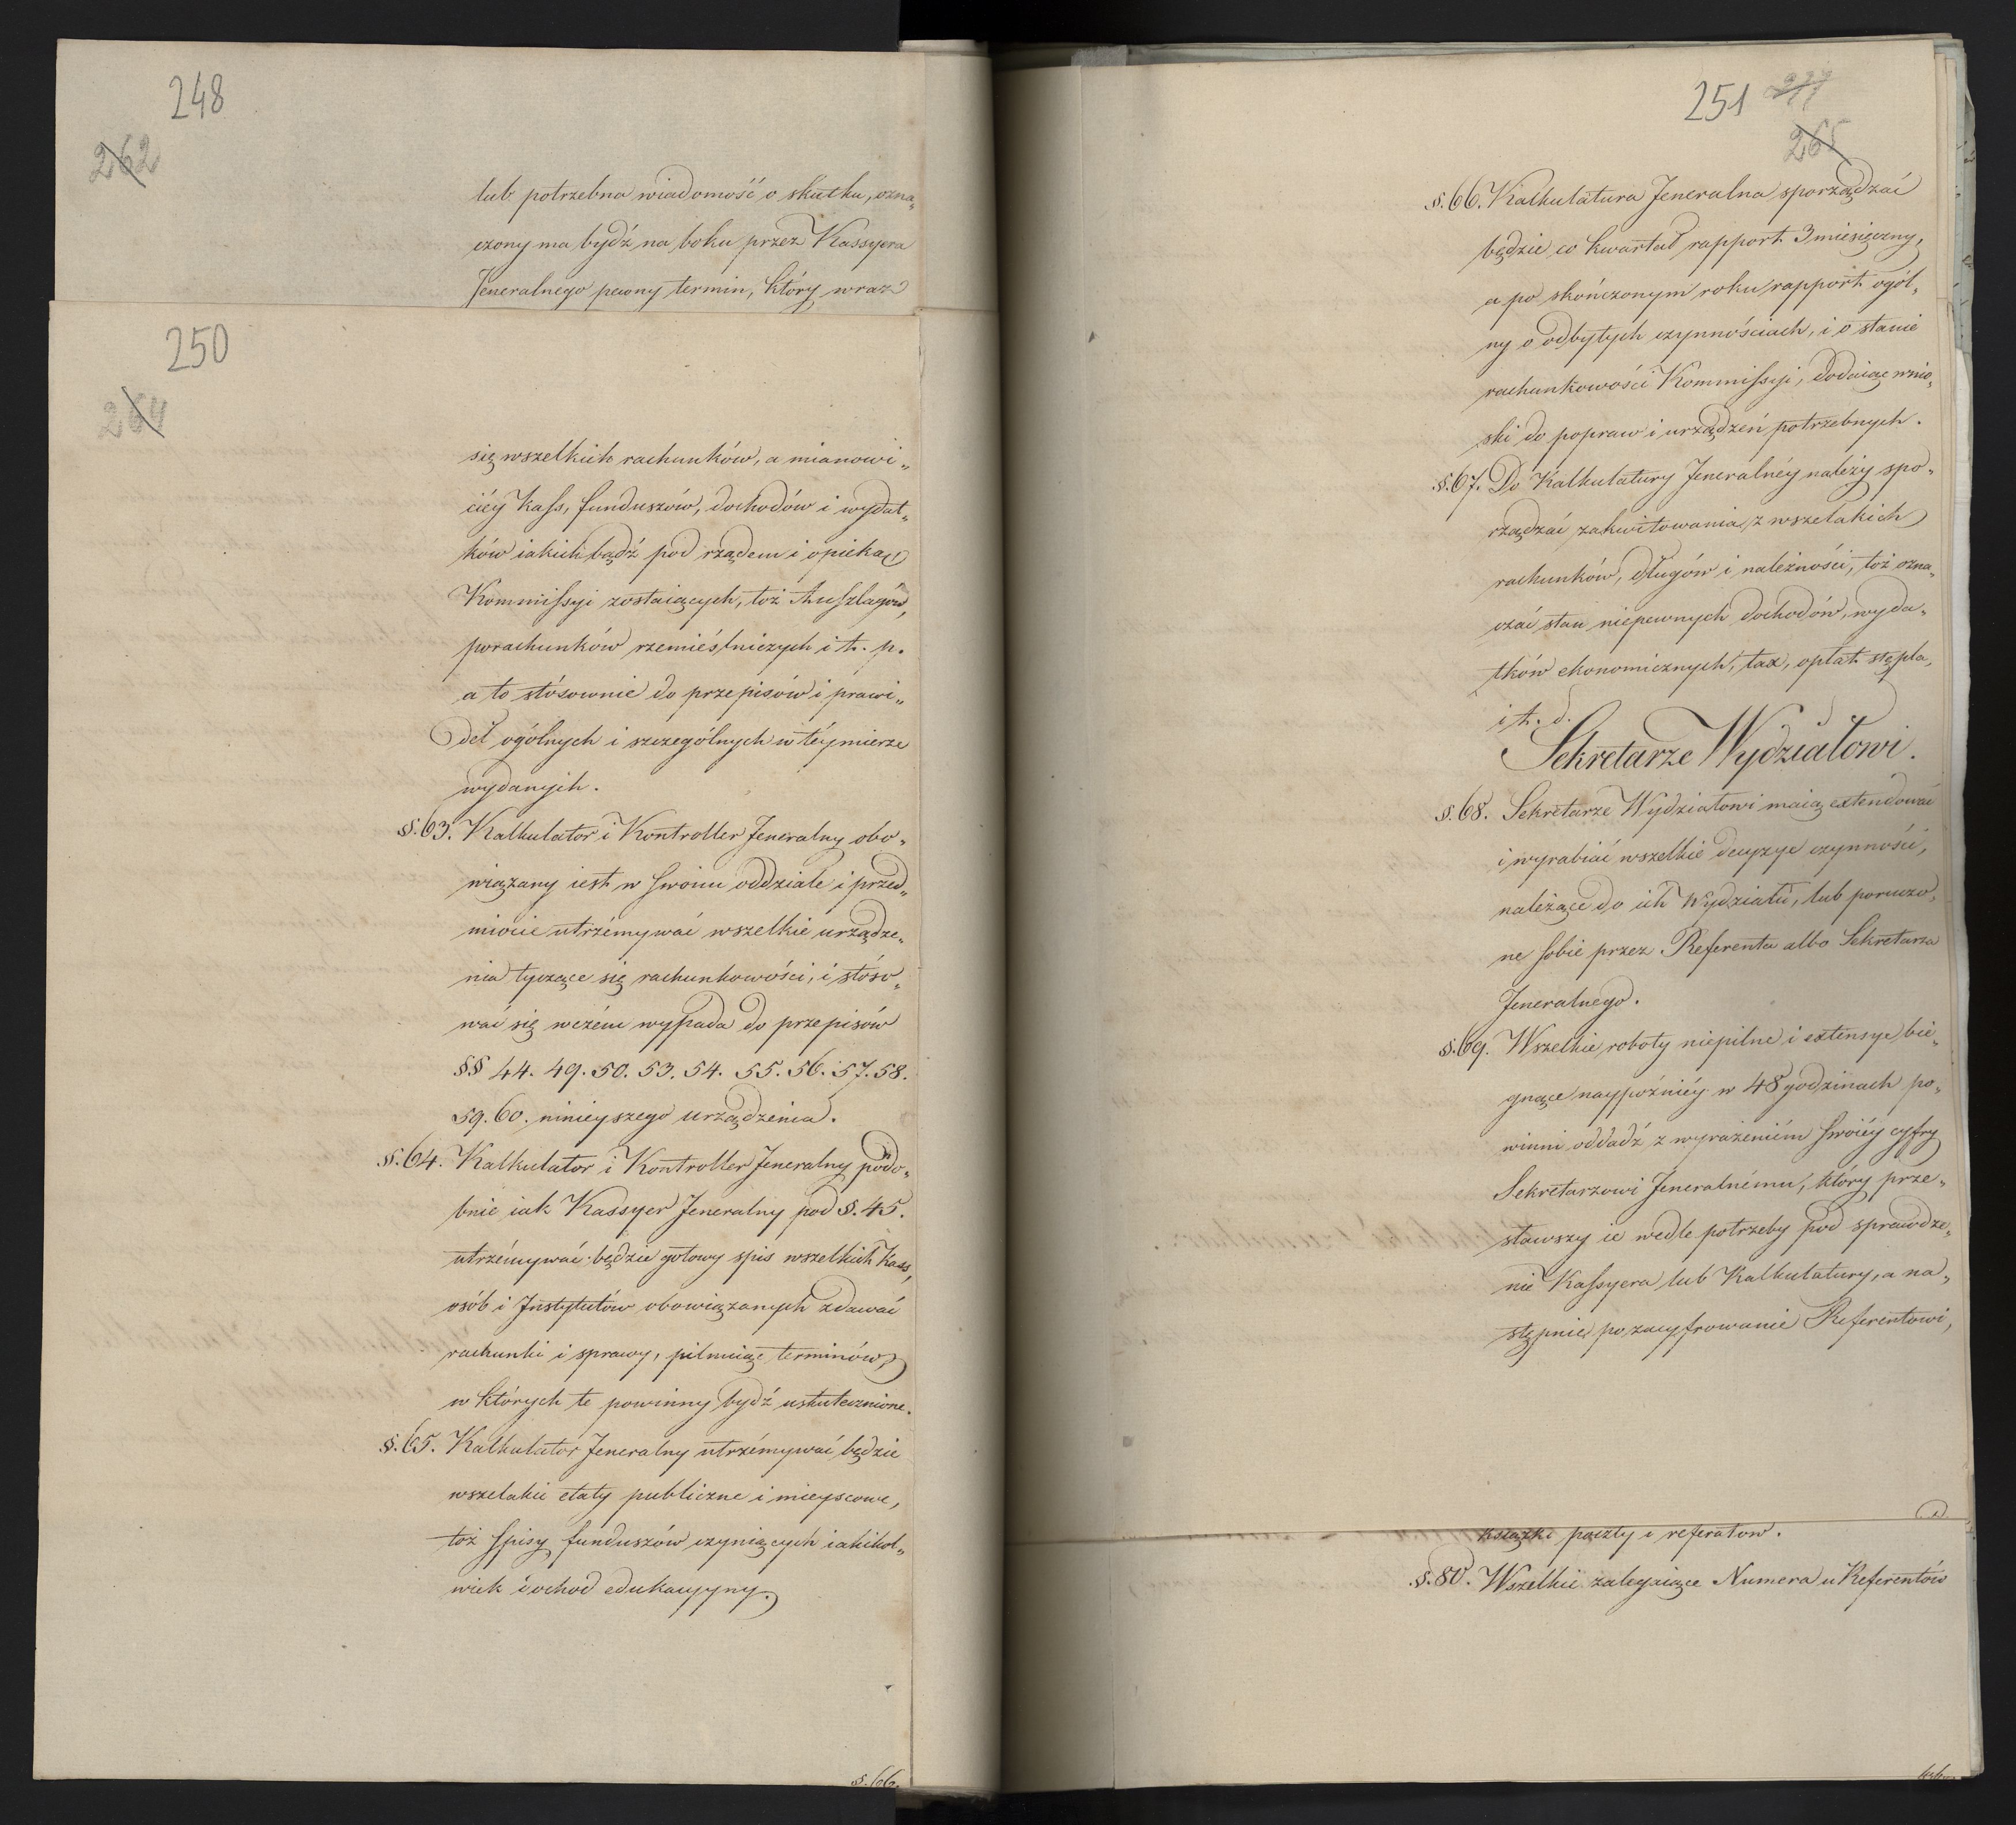 248
262
lub potrzebna wiadomość o skutku, ozna„
czony ma bydź na boku przez Kassyera
Jeneralnego pewny termin, który wraz
250
264
się wszelkich rachunków, a mianowi„
ciéy Kass, funduszów, dochodów i wydat„
ków iakich bądź pod rządem i opieką
Kommissyi zostaiących, toż Auszlagów,
porachunków rzemieślniczych i t. p.
a to stósownie do przepisów i prawi„
deł ogólnych i szczególnych w téy mierze
wydanych.
§. 63. Kalkulator i Kontroller Jeneralny obo„
wiązany iest w swoim oddziale i przed„
miocie utrzémywać wszelkie urządze„
nia tyczące się rachunkowości, i stóso„
wać się wczém wypada do przepisów
§§ 44. 49. 50. 53. 54. 55. 56. 57. 58.
59. 60. ninieyszego urządzenia.
§. 64. Kalkulator i Kontroller Jeneralny podo„
bnie iak Kassyer Jeneralny pod §. 45.
utrzémywać będzie gotowy spis wszelkich Kass,
osób i Instytutów obowiązanych zdawać
rachunki i sprawy, pilnuiąc terminów,
w których te powinny bydź uskutecznione.
§. 65. Kalkulator Jeneralny utrzémywać będzie
wszelakie etaty publiczne i mieyscowe,
toż spisy funduszów czyniących iakikol„
wiek dochod edukacyyny.
§. 66.
251 277
265
§. 66. Kalkulatura Jeneralna sporządzać
będzie co kwartał rapport 3 miesięczny,
a po skończonym roku rapport ogól„
ny o odbytych czynnościach, i o stanie
rachunkowości Kommissyi, dodaiąc wnio„
ski do popraw i urządzeń potrzebnych.
§. 67. Do Kalkulatury Jeneralnéy należy spo„
rządzać zakwitowania z wszelakich
rachunków, długów i należności, toż ozna„
czać stan niepewnych dochodów, wyda„
tków ekonomicznych, tax, opłat stępla,
i t. d.
Sekretarze Wydziałowi.
§. 68. Sekretarze Wydziałowi maią extendować
i wyrabiać wszelkie decyzye czynności,
należące do ich Wydziału, lub poruczo„
ne sobie przez Referenta albo Sekretarza
Jeneralnego.
§. 69. Wszelkie roboty niepilne i extensye bie„
gnące naypoźniéy w 48 godzinach po„
winni oddadź z wyrażeniém swoiéy cyfry
Sekretarzowi Jeneralnému, który prze„
sławszy ie wedle potrzeby pod sprawdze„
nie Kassyera lub Kalkulatury, a na„
stępnie po zacyfrowanie Referentowi,
książki poczty i referatow.
§. 80. Wszelkie zalegaiące Numera u Referentów